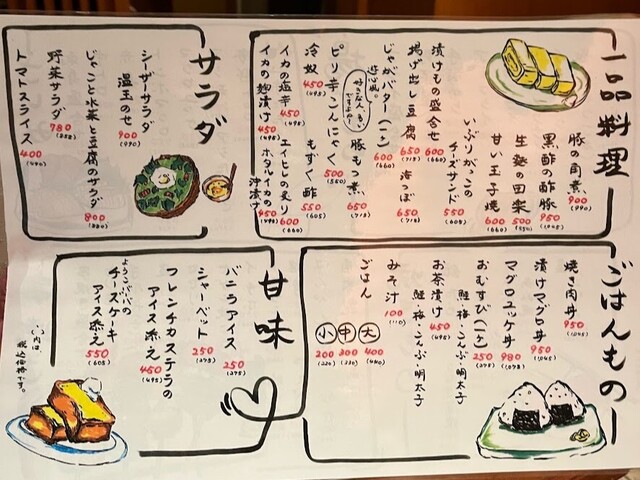 一品料理
豚の角煮 900 (990)
黒酢の酢豚 950 (1,045)
生麩の田楽 500 (550)
甘い玉子焼 600 (660)
いぶりがっこのチーズサンド 550 (605)
漬けもの盛合せ 600 (660)
揚げ出し豆腐 650 (715)
海っぽ 650 (715)
じゃがバター(一ケ) 600 (660)
遊心風。
豚もつ煮 650 (715)
好きな人、多いですよね…
ピリ辛こんにゃく 500 (550)
冷奴 450 (495)
もずく酢 550 (605)
イカの塩辛 450 (495)
エイヒレの炙り 600 (660)
イカの麹漬け 450 (495)
ホタルイカの沖漬け 450 (495)
サラダ
シーザーサラダ
温玉のせ 900 (990)
じゃこと水菜と豆腐のサラダ 800 (880)
野菜サラダ 780 (858)
トマトスライス 400 (440)
ごはんもの
焼き肉丼 950 (1,045)
漬けマグロ丼 950 (1,045)
マグロユッケ丼 980 (1,078)
おむすび(一ケ) 250 (275)
鮭・梅・こんぶ・明太子
お茶漬け 450 (495)
鮭・梅・こんぶ・明太子
みそ汁 100 (110)
ごはん
大 400 (440)
中 300 (330)
小 200 (220)
甘味
バニラアイス 250 (275)
シャーベット 250 (275)
フレンチカステラの
アイス添え 450 (495)
チーズケーキ
アイス添え 550 (605)
( )内は
税込価格です。